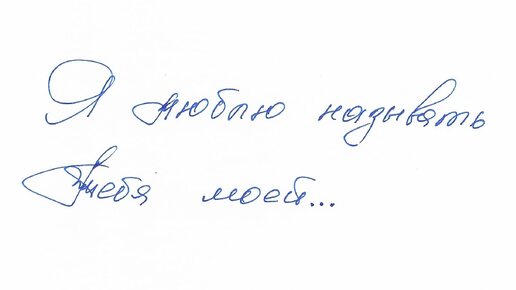 Я люблю называть
тебя моей...